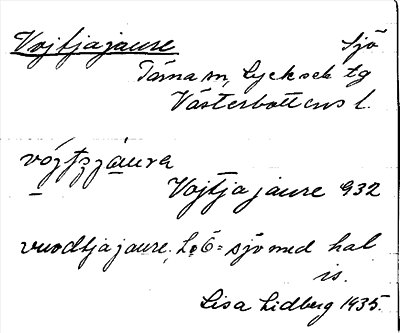 Vojtjajaure Sjö
Tärna sn, Lycksele tg
Västerbottens l.
Vojtjajaure 932
vuodtjajaure; L.Ö = sjö med hal
is.
Lisa Lidberg 1935.